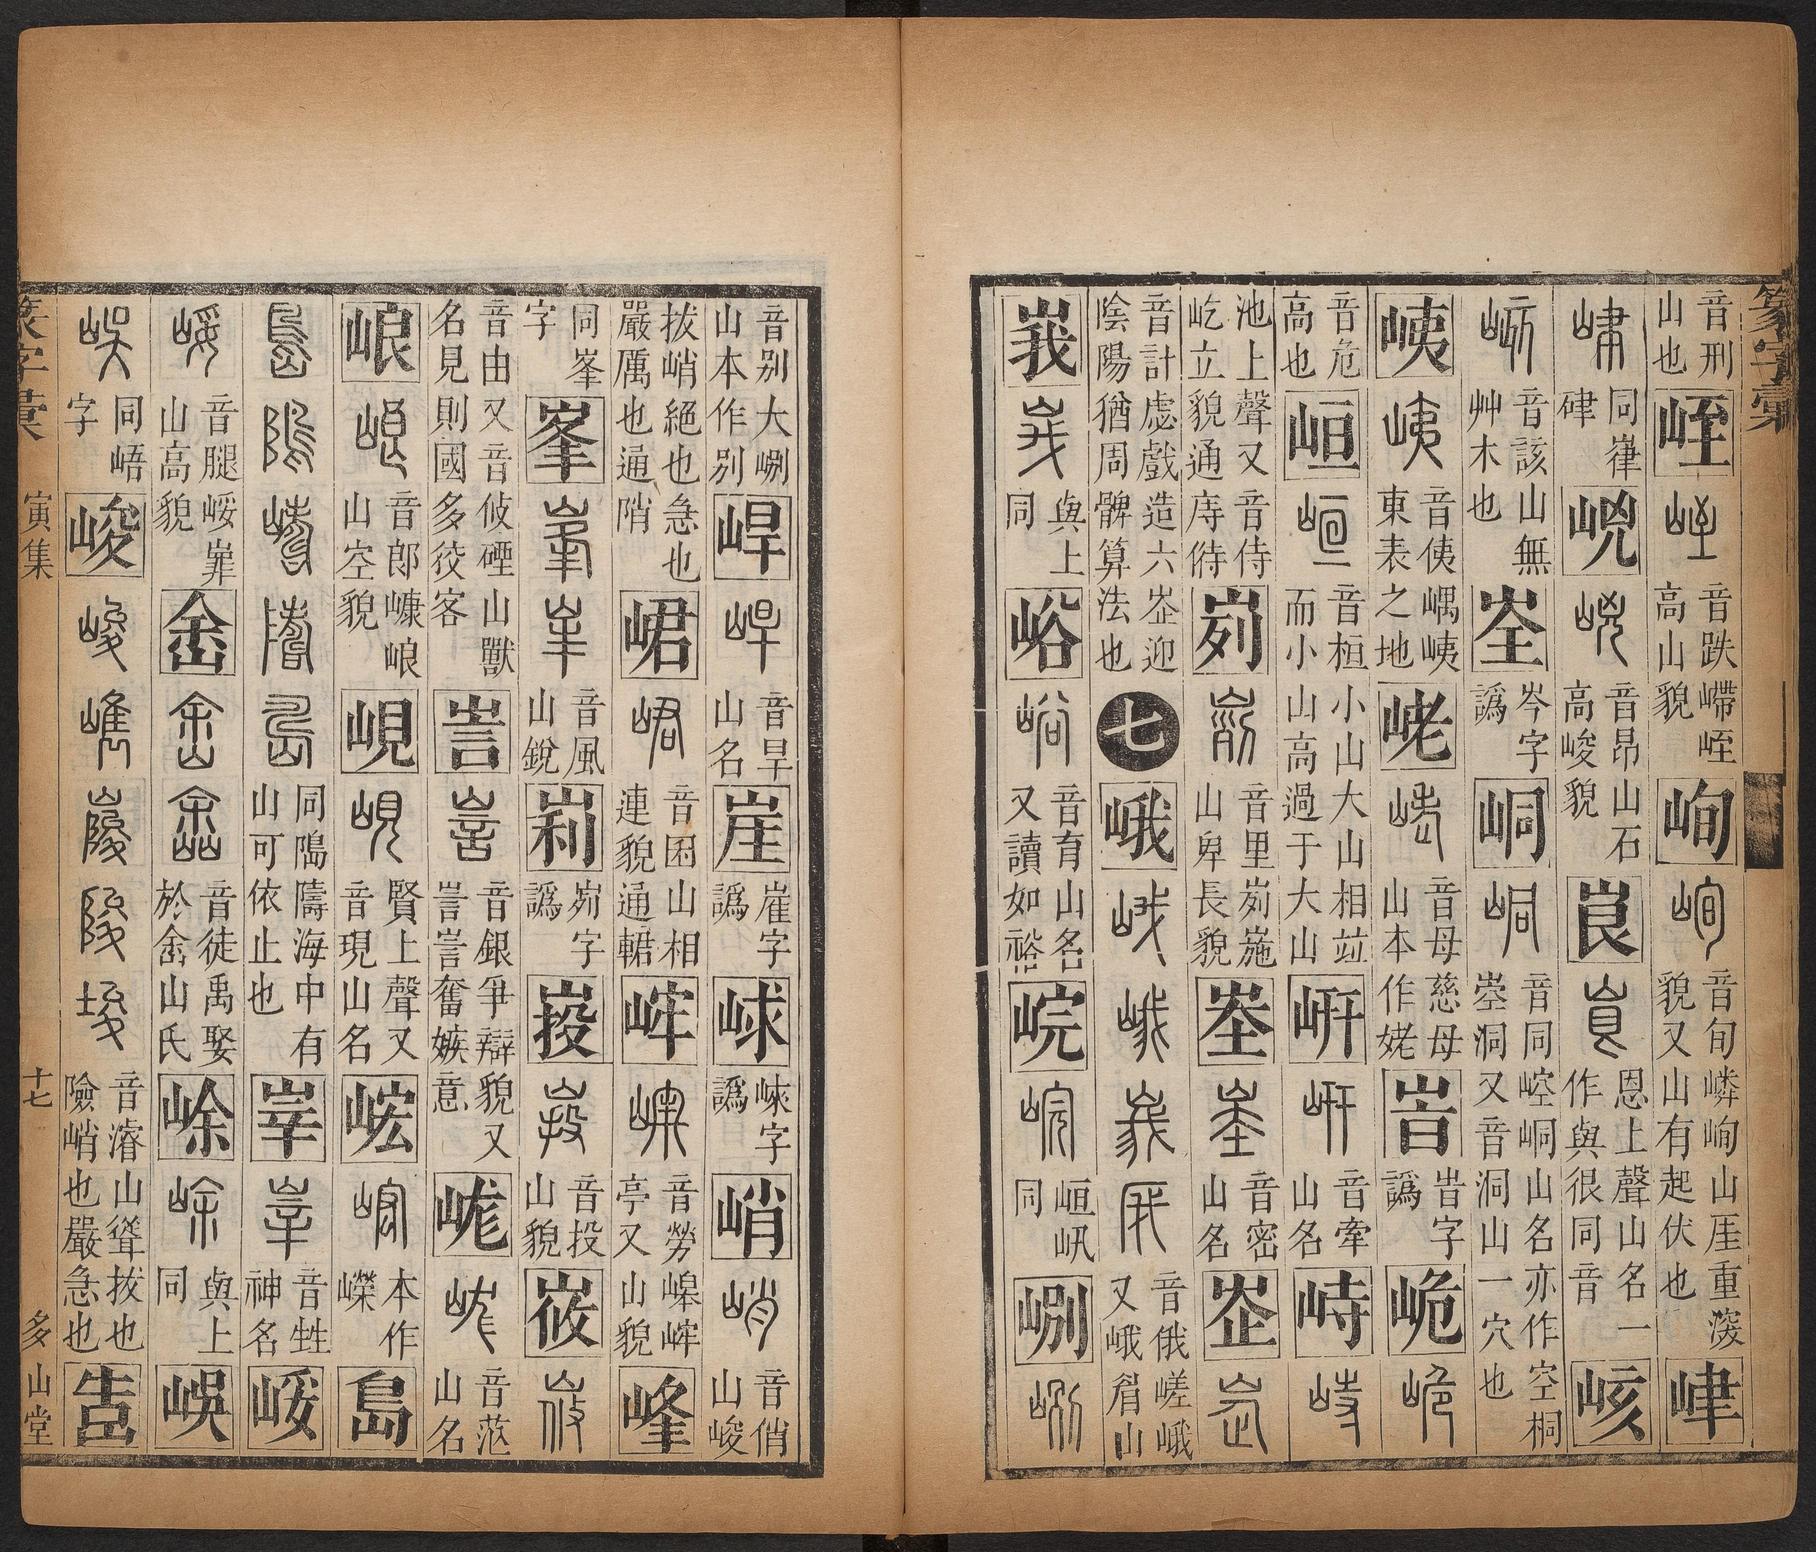 篆字彙
音刑山也 峌 峌 音跌嵽峌高山貌 峋 峋 音旬嶙峋山厓重㴱貌又山有起伏也 峍
峍 同嵂硉 音昂山石高峻貌 峎 峎 恩上聲山名一作與很同音 峐
峐 音該山無艸木也 峑 岑字譌 峒 峒 音同崆峒山名亦作空桐崆洞又音洞山一穴也
峓 峓 音侇嵎峓東表之地 音母慈母山本作姥 峕 旹字譌 峗 峗
音危高也 峘 峘 音桓小山大山相竝而小山高過于大山 岍 岍 音牽山名 峙 峙
池上聲又音侍屹立貌通庤偫 峛 峛 音里峛崺山卑長貌 峚 峚 音密山名 峜 峜
音計虙戲造六峜迎陰陽猶周髀算法也 七 峨 峨 峨 峩 音俄嵯峨又峨眉山
峩 峩 與上同 峪 峪 音育山名又讀如裕 同
音别大山本作别 音旱山名 崖 崖字譌 崍字譌 峭 峭 音俏山峻
拔峭絕也急也嚴厲也通陗 峮 峮 音囷山相連貌通輑 音勞亭又山貌 峰
同峯字 峯 峯 峯 音風山銳 峲 峛字譌 音投山貌 峳 峳
音由又音攸硾山獸名見則國多役客 訔 訔 音銀爭辯貌又訔訔奮嫉意 音茫山名
音郎山空貌 峴 峴 賢上聲又音現山名 峵 峵 本作嶸 島
島 隝 島 同隝隯海中有山可依止也 峷 峷 音甡神名
音腿山高貌 峹 峹 音徒禹娶於峹山氏 與上同
同峿字 峻 峻 音濬山聳拔也險峭也嚴急也 峼
篆字彙 寅集 十七 多山堂